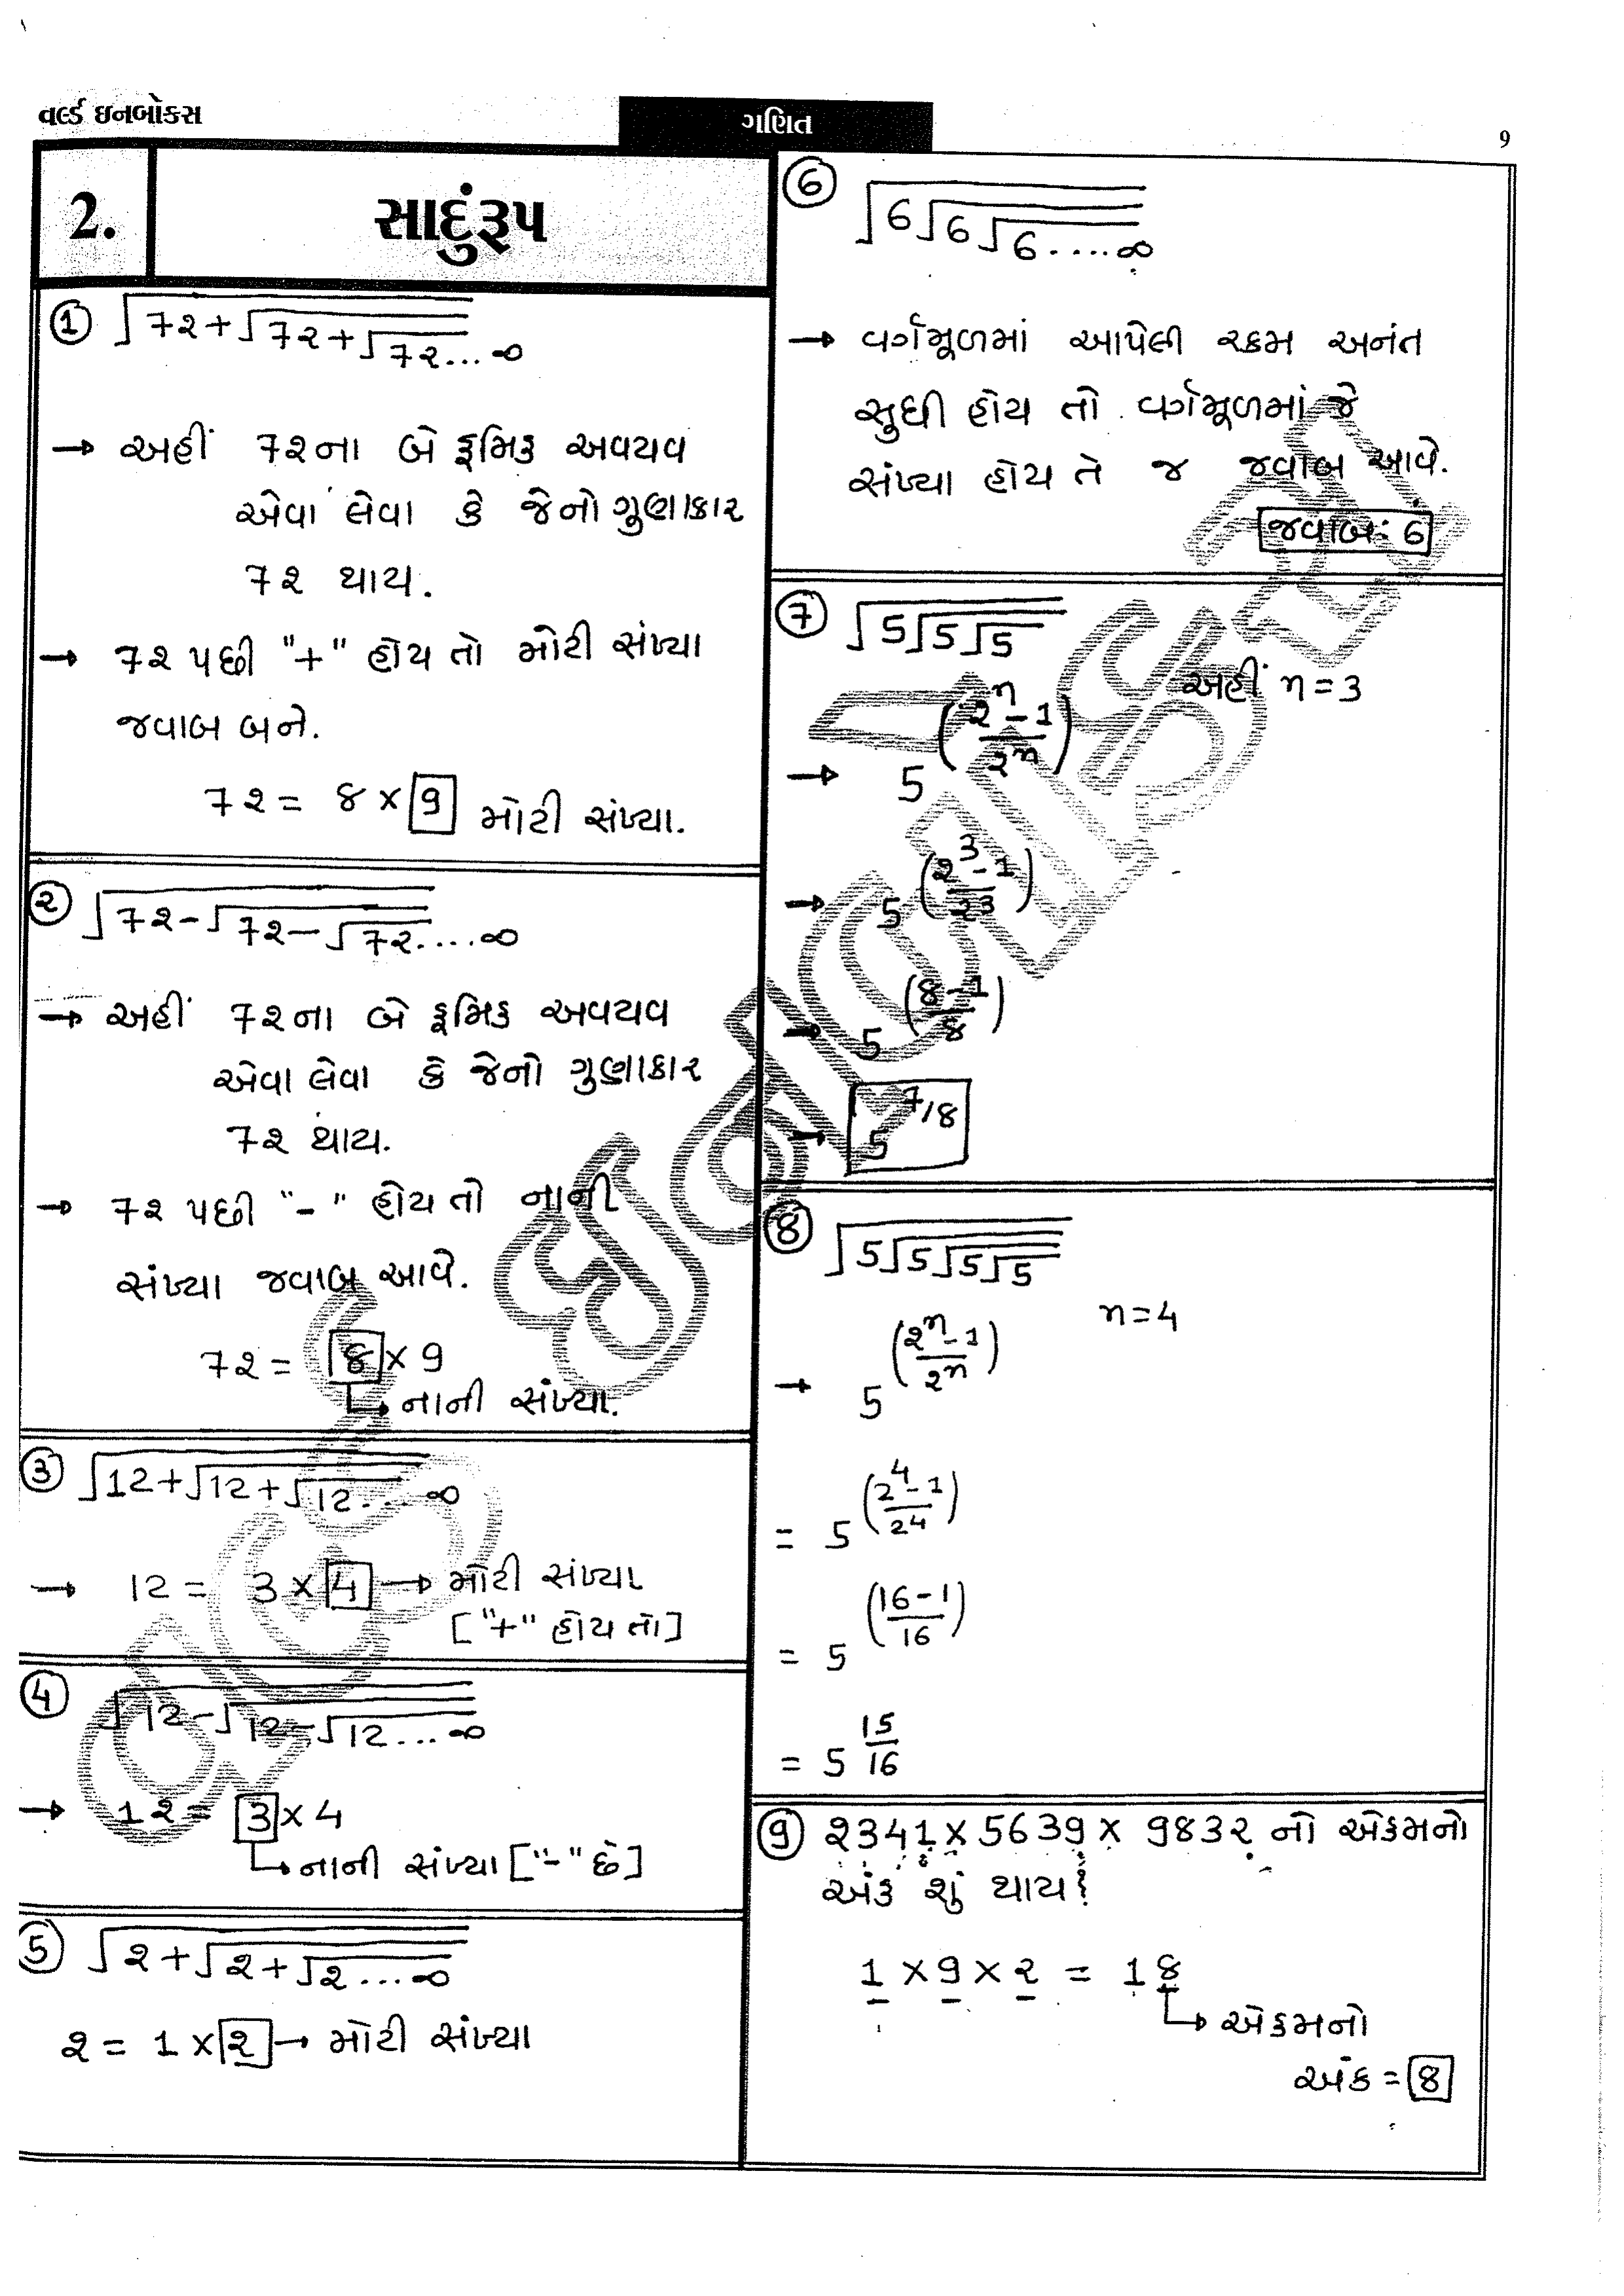 વર્લ્ડ ઇનબોક્સ
ગણિત
9
2.
સાદુંરૂપ
① √72+√72+√72...∞
→ અહીં 72ના બે ક્રમિક અવયવ
એવા લેવા કે જેનો ગુણાકાર
72 થાય.
→ 72 પછી "+" હોય તો મોટી સંખ્યા
જવાબ બને.
72 = 8 × 9 મોટી સંખ્યા.
② √72-√72-√72....∞
→ અહીં 72ના બે ક્રમિક અવયવ
એવા લેવા કે જેનો ગુણાકાર
72 થાય.
→ 72 પછી "-" હોય તો નાની
સંખ્યા જવાબ આવે.
72 = 8 × 9
↳ નાની સંખ્યા.
③ √12+√12+√12....∞
→ 12 = 3 × 4 → મોટી સંખ્યા
["+" હોય તો]
④ √12-√12-√12...∞
→ 12 = 3 × 4
↳ નાની સંખ્યા ["-" છે]
⑤ √2+√2+√2...∞
2 = 1 × 2 → મોટી સંખ્યા
⑥ √6√6√6....∞
→ વર્ગમૂળમાં આપેલી રકમ અનંત
સુધી હોય તો વર્ગમૂળમાં જે
સંખ્યા હોય તે જ જવાબ આવે.
જવાબ: 6
⑦ √5√5√5
અહીં n = 3
→ 5^((2^n-1)/2^n)
→ 5^((2^3-1)/2^3)
→ 5^((8-1)/8)
→ 5^(7/8)
⑧ √5√5√5√5
n = 4
→ 5^((2^n-1)/2^n)
= 5^((2^4-1)/2^4)
= 5^((16-1)/16)
= 5^(15/16)
⑨ 2341 × 5639 × 9832 નો એકમનો
અંક શું થાય?
1 × 9 × 2 = 18
↳ એકમનો
અંક = 8